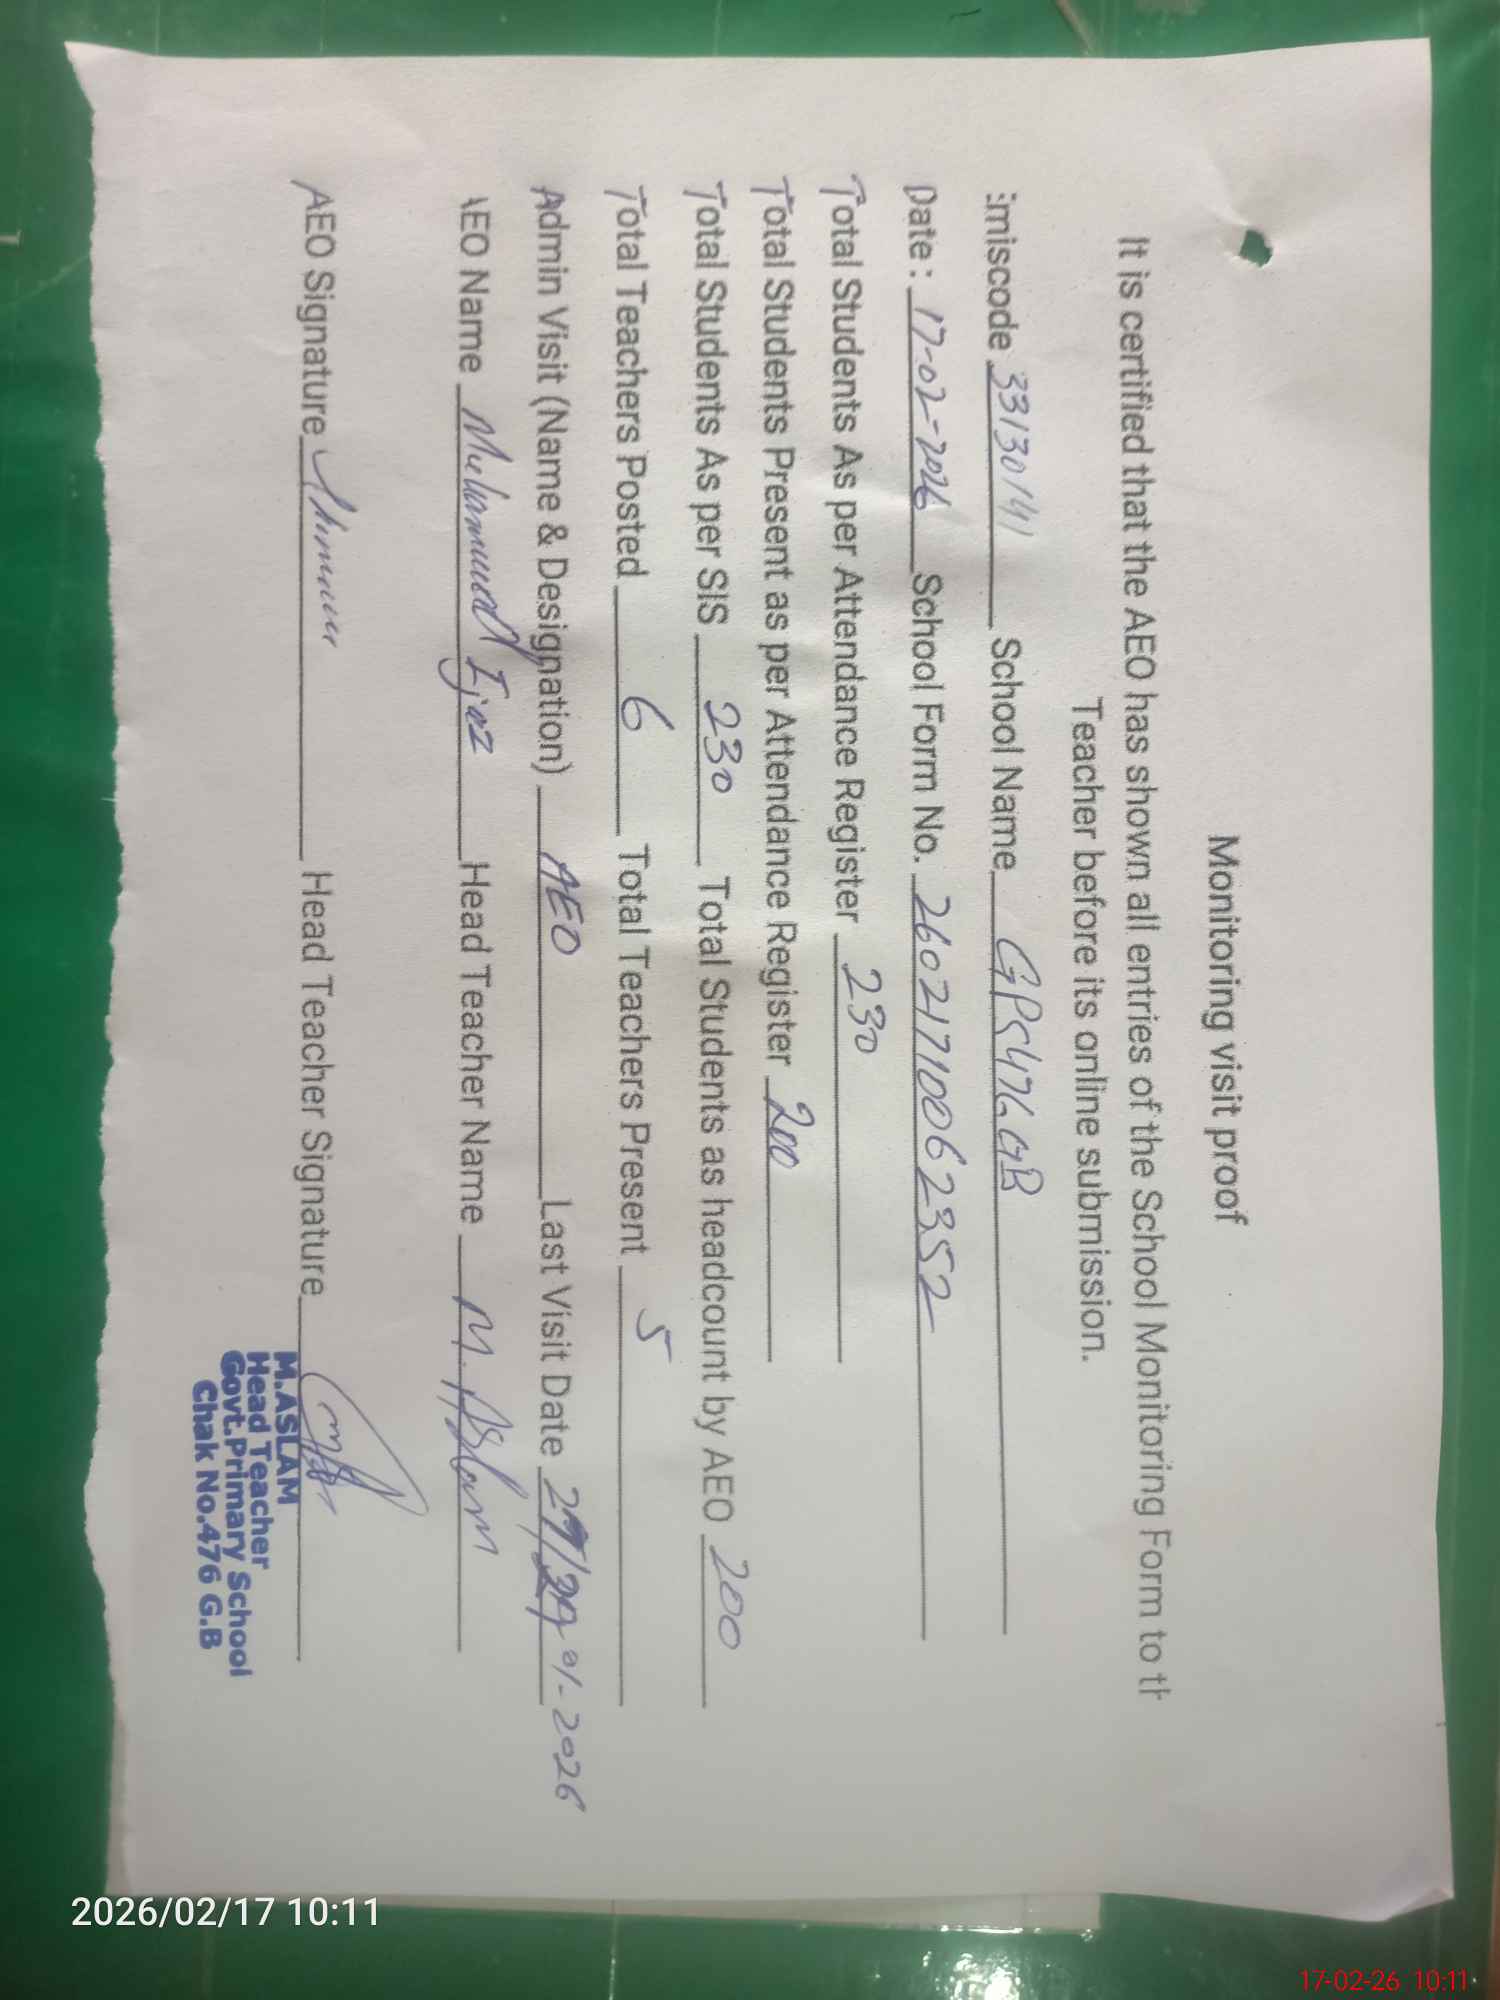 Monitoring visit proof
It is certified that the AEO has shown all entries of the School Monitoring Form to th
Teacher before its online submission.
Emiscode 33130141 School Name GPS 476 GB
Date: 17-02-2026 School Form No. 26021710062352
Total Students As per Attendance Register 230
Total Students Present as per Attendance Register 200
Total Students As per SIS 230 Total Students as headcount by AEO 200
Total Teachers Posted 6 Total Teachers Present 5
Admin Visit (Name & Designation) AEO Last Visit Date 01-2026
AEO Name Muhammad Ijaz Head Teacher Name M. Aslam
AEO Signature Head Teacher Signature
M.ASLAM
Head Teacher
Govt.Primary School
Chak No.476 G.B
2026/02/17 10:11
17-02-26 10:11